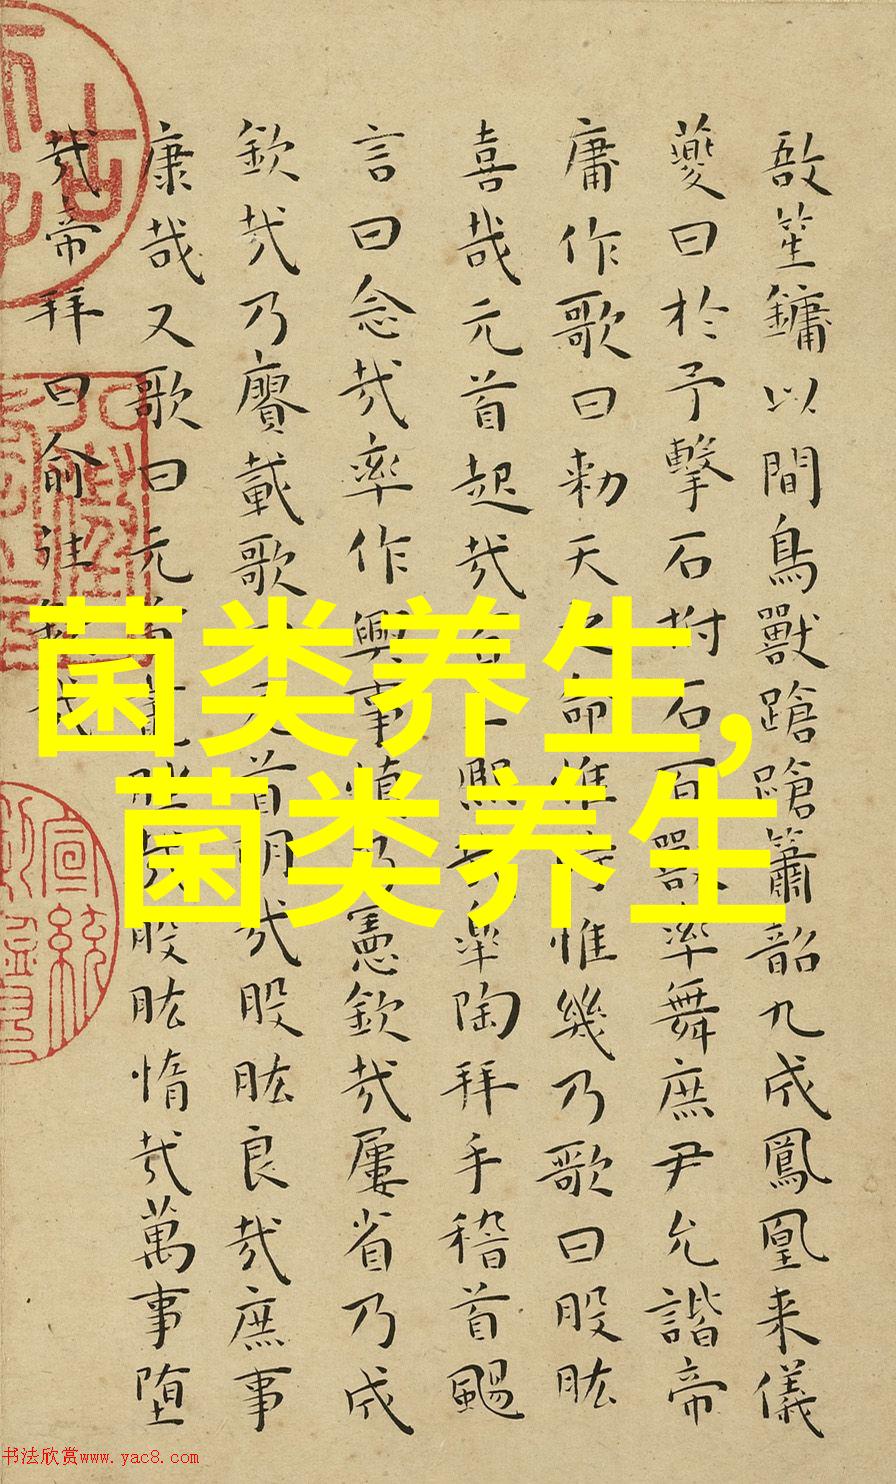 敔笙鏞以間鳥獸蹌蹌簫韶九成鳳凰来儀
夔曰於予擊石拊石百獸率舞庶尹允諧帝
庸作歌曰勑天之命惟時惟幾乃歌曰股肱
喜哉元首起哉百工熙哉皐陶拜手稽首颺
言曰念哉率作興事慎乃憲欽哉屢省乃成
欽哉乃賡載歌曰元首明哉股肱良哉庶事
康哉又歌曰元首叢脞哉股肱惰哉萬事堕
哉帝拜曰俞往欽哉
菌类养生,
菌类养生
宣統
书法欣赏www.yac8.com